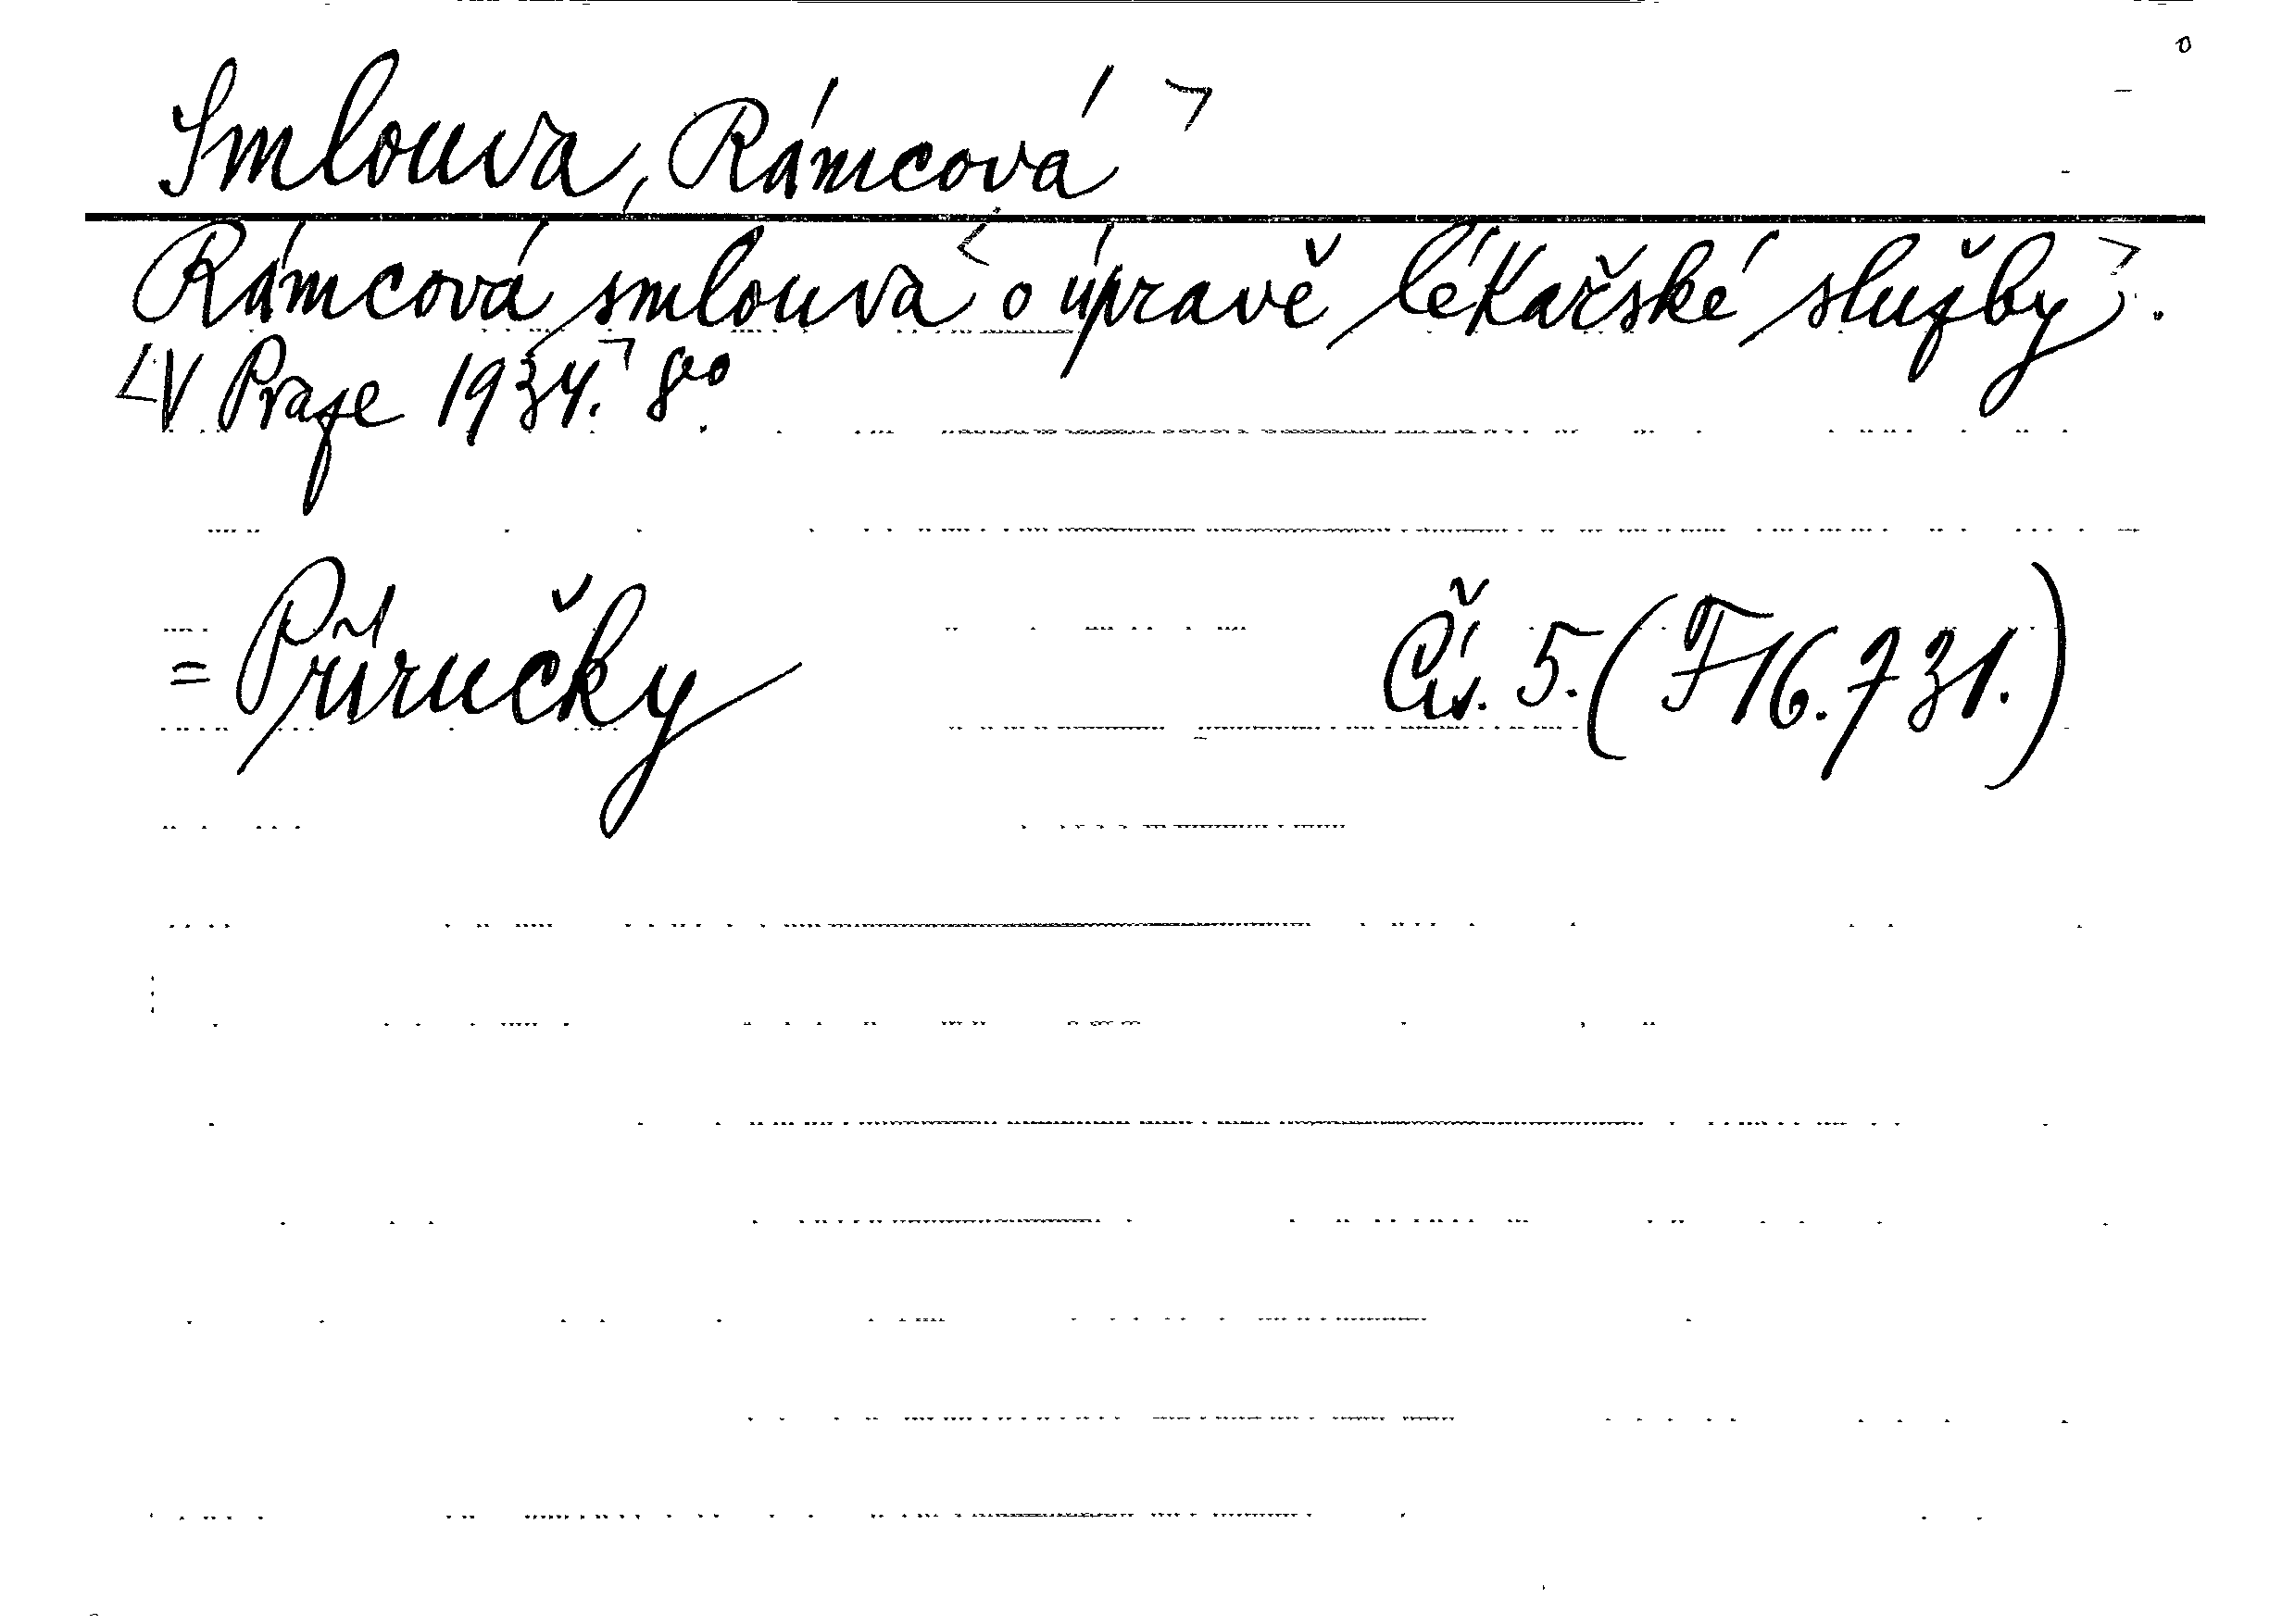 Smlouva, Rámcová ¬
Rámcová smlouva < o úpravě lékařské služby ¬.
<V Praze 1934.¬ 8°
= Příručky Čís. 5. (F16.731.)